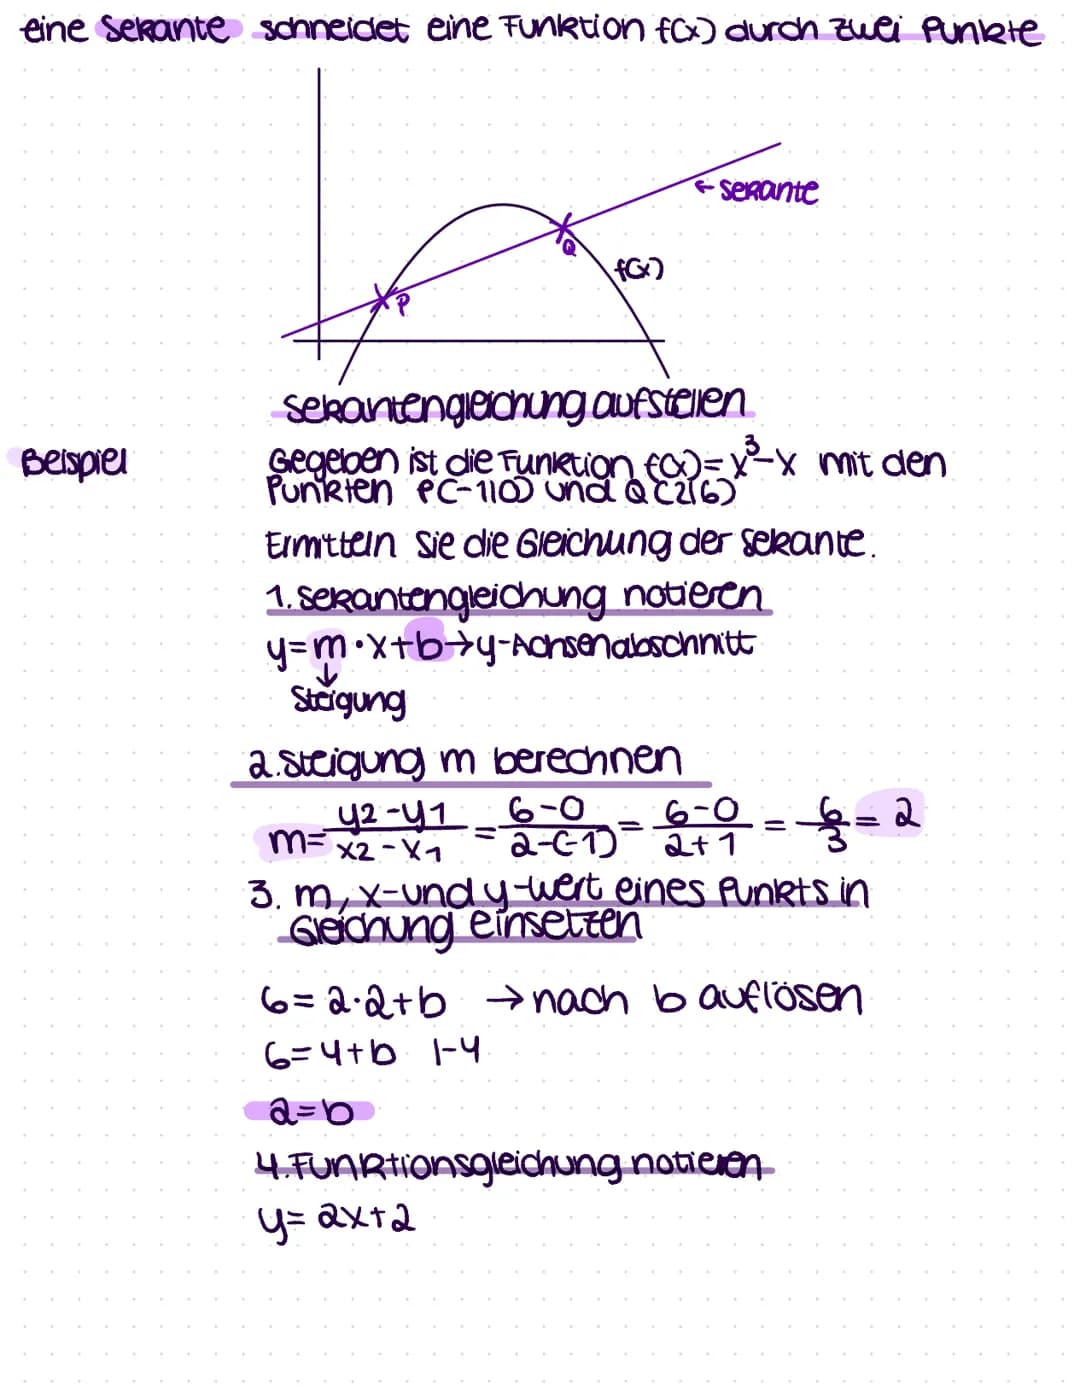 eine Sekante schneidet eine Funktion f(x) durch zwei Punkte
← Sekante
Q
f(x)
P
Sekantengleichung aufstellen
Beispiel
Gegeben ist die Funktion f(x)=x³-x mit den
Punkten P(-1|0) und Q(2|6)
Ermitteln Sie die Gleichung der Sekante.
1. Sekantengleichung notieren
y=m·x+b→y-Achsenabschnitt
↓
Steigung
2. Steigung m berechnen
m= y2-y1 / x2-x1 = 6-0 / 2-(-1) = 6-0 / 2+1 = 6/3 = 2
3. m, x-und y-Wert eines Punkts in
Gleichung einsetzen
6=2·2+b → nach b auflösen
6=4+b |-4
2=b
4. Funktionsgleichung notieren
y= 2x+2